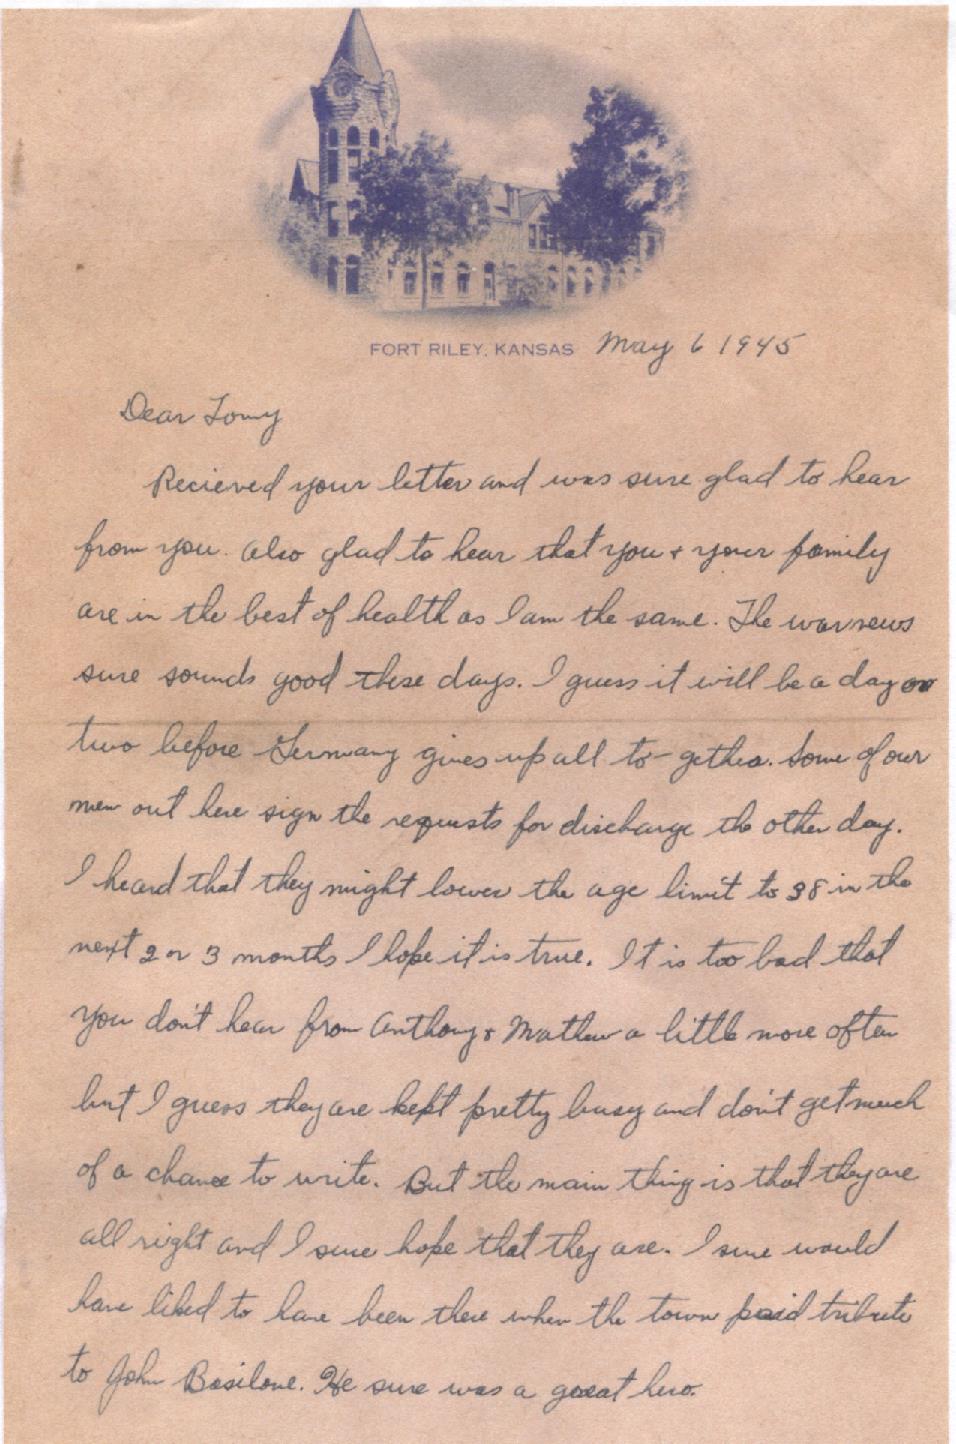 FORT RILEY, KANSAS May 6 1945
Dear Tomy
Recieved your letter and was sure glad to hear
from you. Also glad to hear that you + your family
are in the best of health as I am the same. The war news
sure sounds good these days. I guess it will be a day or
two before Germany gives up all to-gether. Some of our
men out here sign the requests for discharge the other day.
I heard that they might lower the age limit to 38 in the
next 2 or 3 months I hope it is true. It is too bad that
you don't hear from Anthony & Mathew a little more often
but I guess they are kept pretty busy and don't get much
of a chance to write. But the main thing is that they are
all right and I sure hope that they are. I sure would
have liked to have been there when the town paid tribute
to John Basilone. He sure was a great hero.